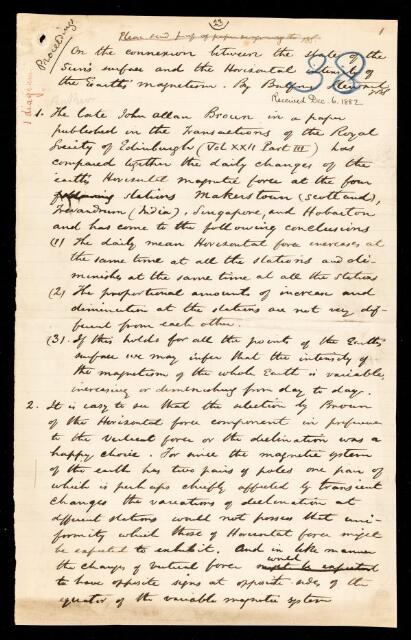 (23)
Please send proof of paper
1
Proceedings
1 diagram
38
On the connexion between the state of the
Sun's surface and the Horizontal intensity of
the Earth's magnetism. By Balfour Stewart
Received Dec. 6. 1882
1. The late John Allan Brown in a paper
published in the Transactions of the Royal
Society of Edinburgh (Vol XXII Part III) has
compared together the daily changes of the
earth's Horizontal magnetic force at the four
following stations Makerstown (Scotland),
Trevandrum (India), Singapore, and Hobarton
and has come to the following conclusions
(1) The daily mean Horizontal force increases at
the same time at all the stations and di-
minishes at the same time at all the stations
(2) The proportional amounts of increase and
diminution at the stations are not very dif-
ferent from each other.
(3). If this holds for all the points of the Earth's
surface we may infer that the intensity of
the magnetism of the whole Earth is variable,
increasing or diminishing from day to day.
2. It is easy to see that the selection by Brown
of the Horizontal force component in preference
to the vertical force or the declination was a
happy choice. For since the magnetic system
of the earth has two pairs of poles one pair of
which is perhaps chiefly affected by transient
changes the variations of declination at
different stations would not posses that uni-
formity which those of Horizontal force might
be expected to exhibit. And in like manner
would
the changes of vertical force might be expected
to have opposite signs at opposite sides of the
equator of the variable magnetic system